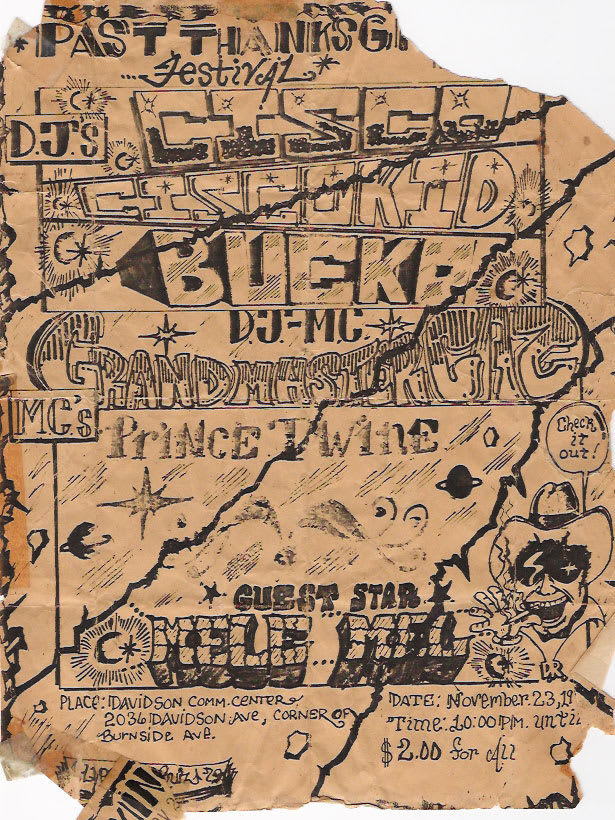 *PAST THANKSGI
...Festival*
D.J.'s
CISCOKID
DJ-MC
GRANDMASTER CAZ
MC's
PRINCE T'WINE
Check
it
out!
GUEST STAR
MELE...MEL
PLACE: DAVIDSON COMM. CENTER
2036 DAVIDSON AVE, CORNER OF
BURNSIDE AVE.
DATE: November 23, 19
Time: 10:00 P.M. until
$2.00 for all